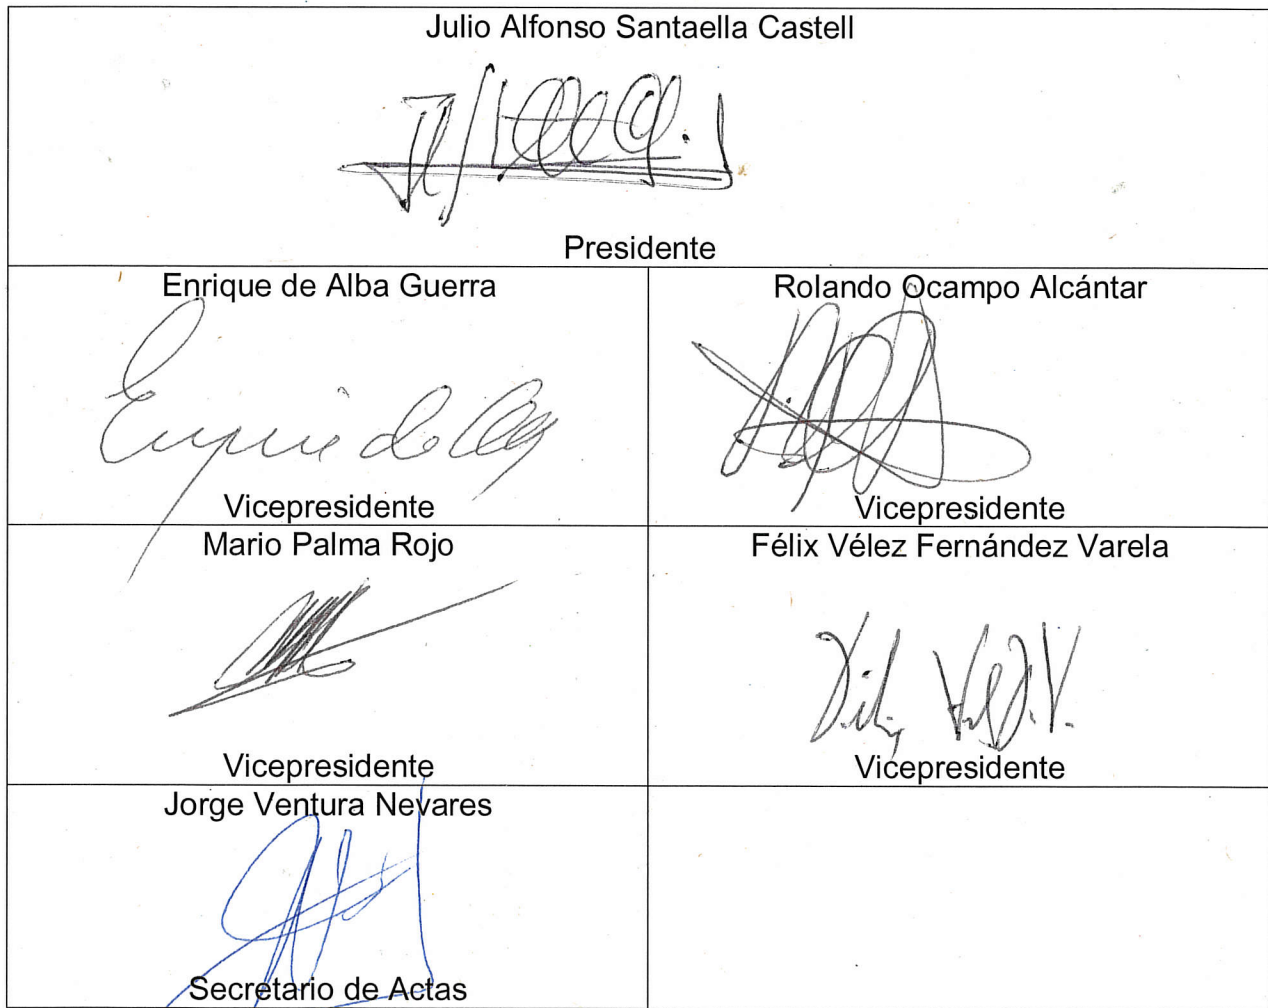 Julio Alfonso Santaella Castell
Presidente
Enrique de Alba Guerra
Vicepresidente
Rolando Ocampo Alcántar
Vicepresidente
Mario Palma Rojo
Vicepresidente
Félix Vélez Fernández Varela
Vicepresidente
Jorge Ventura Nevares
Secretario de Actas